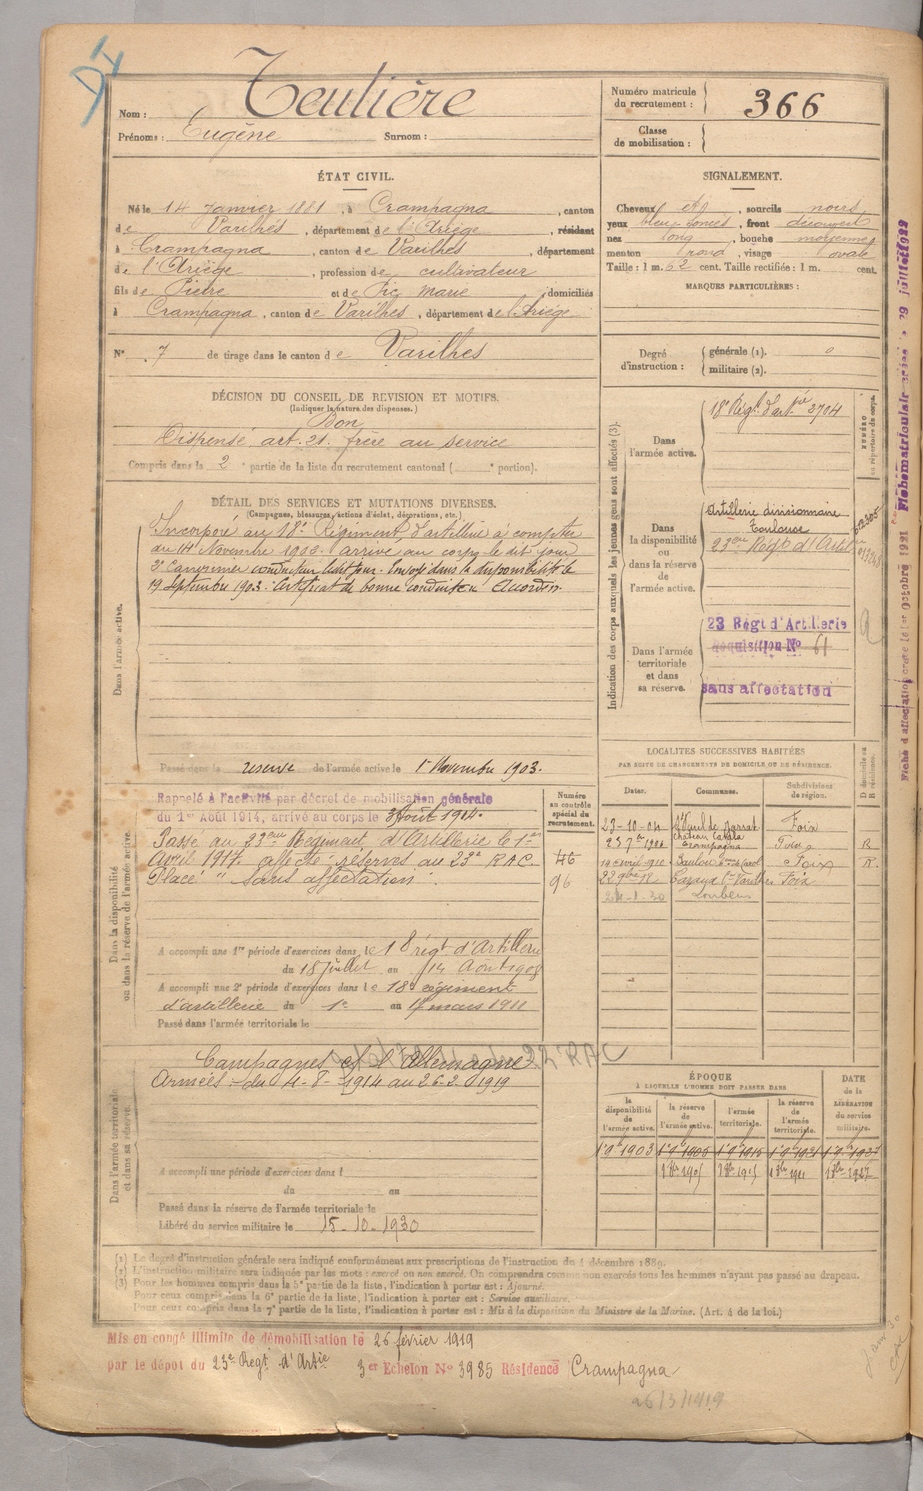 DI
Nom : Teulière
Prénoms : Eugène Surnom :
Numéro matricule du recrutement : 366
Classe de mobilisation :
ÉTAT CIVIL.
Né le 14 janvier 1881, à Crampagna, canton
de Varilhes, département de l'Ariège, résidant
à Crampagna, canton de Varilhes, département
de l'Ariège, profession de cultivateur
fils de Pierre et de Pic Marie domiciliés
à Crampagna, canton de Varilhes, département de l'Ariège
N° 7 de tirage dans le canton de Varilhes
SIGNALEMENT.
Cheveux, sourcils noirs
yeux bleu foncés, front découvert
nez long, bouche moyenne
menton rond, visage ovale
Taille : 1 m. 62 cent. Taille rectifiée : 1 m. cent.
MARQUES PARTICULIÈRES :
Degré d'instruction : générale (1).
militaire (2).
DÉCISION DU CONSEIL DE REVISION ET MOTIFS.
(Indiquer la nature des dispenses.)
Bon
Dispensé art. 21. frère au service
Compris dans la 2e partie de la liste du recrutement cantonal ( e portion).
DÉTAIL DES SERVICES ET MUTATIONS DIVERSES.
(Campagnes, blessures, actions d'éclat, décorations, etc.)
Dans l'armée active.
Incorporé au 18e Régiment d'artillerie à compter
du 14 Novembre 1902. arrivé au corps le dit jour
2e Canonnier conducteur ledit jour. Envoyé dans la disponibilité le
19 Septembre 1903. Certificat de bonne conduite Accordé.
Passé dans la réserve de l'armée active le 1er Novembre 1903.
Indication des corps auxquels les jeunes gens sont affectés (3).
NUMÉRO au répertoire du corps.
Dans l'armée active.
18e Régt d'art. 2704
Dans la disponibilité ou dans la réserve de l'armée active.
Artillerie divisionnaire
Toulouse
23eme Régt d'Artie
Dans l'armée territoriale et dans sa réserve.
23 Régt d'Artillerie
N° 61
sans affectation
LOCALITÉS SUCCESSIVES HABITÉES
PAR SUITE DE CHANGEMENTS DE DOMICILE OU DE RÉSIDENCE.
Dates. Communes. Subdivisions de région. D domicile ou R résidence.
23-10-04 St Paul de Jarrat Foix
Crampagna Foix R
19 avril 1910 Foix R
Foix
Loubens
Dans la disponibilité ou dans la réserve de l'armée active.
Numéro au contrôle spécial du recrutement.
46
96
Rappelé à l'activité par décret de mobilisation générale
du 1er Août 1914, arrivé au corps le 3 Août 1914.
Passé au 23eme Régiment d'Artillerie le 1er
Avril 1917. affecté réserves au 23e RAC.
Placé " Sans affectation".
A accompli une 1re période d'exercices dans le 18 régt d'Artillerie
du 18 juillet au 14 Août 1908
A accompli une 2e période d'exercices dans le 18e régiment
d'artillerie du 1er au 17 mars 1911
Passé dans l'armée territoriale le
Dans l'armée territoriale et dans sa réserve.
22 RAC
Campagnes l'Allemagne
Armées = du 4-8-1914 au 26-2-1919
A accompli une période d'exercices dans l
du au
Passé dans la réserve de l'armée territoriale le
Libéré du service militaire le 15-10-1930
ÉPOQUE
À LAQUELLE L'HOMME DOIT PASSER DANS
la disponibilité de l'armée active. la réserve de l'armée active. l'armée territoriale. la réserve de l'armée territoriale. DATE de la LIBÉRATION du service militaire.
(1) Le degré d'instruction générale sera indiqué conformément aux prescriptions de l'instruction du 4 décembre 1889.
(2) L'instruction militaire sera indiquée par les mots : exercé ou non exercé. On comprendra comme non exercés tous les hommes n'ayant pas passé au drapeau.
(3) Pour les hommes compris dans la 5e partie de la liste, l'indication à porter est : Ajourné.
Pour ceux compris dans la 6e partie de la liste, l'indication à porter est : Service auxiliaire.
Pour ceux compris dans la 7e partie de la liste, l'indication à porter est : Mis à la disposition du Ministre de la Marine. (Art. 4 de la loi.)
Mis en congé illimité de démobilisation le 26 février 1919
par le dépôt du 23e Regt d'Artie 3er Echelon N° 3985 Résidence Crampagna
26/3/1919
Fiche d'affectation créée le 1er Octobre 1921 Fiche matriculaire créée 29 juillet 1922